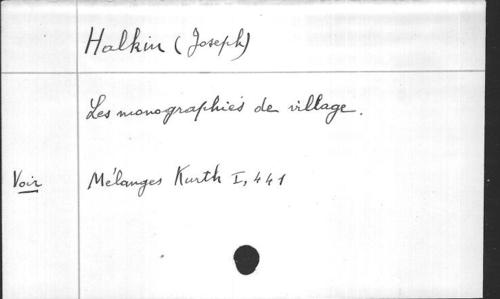 Halkin (Joseph)
Les monographies de village.
Voir Mélanges Kurth I, 441